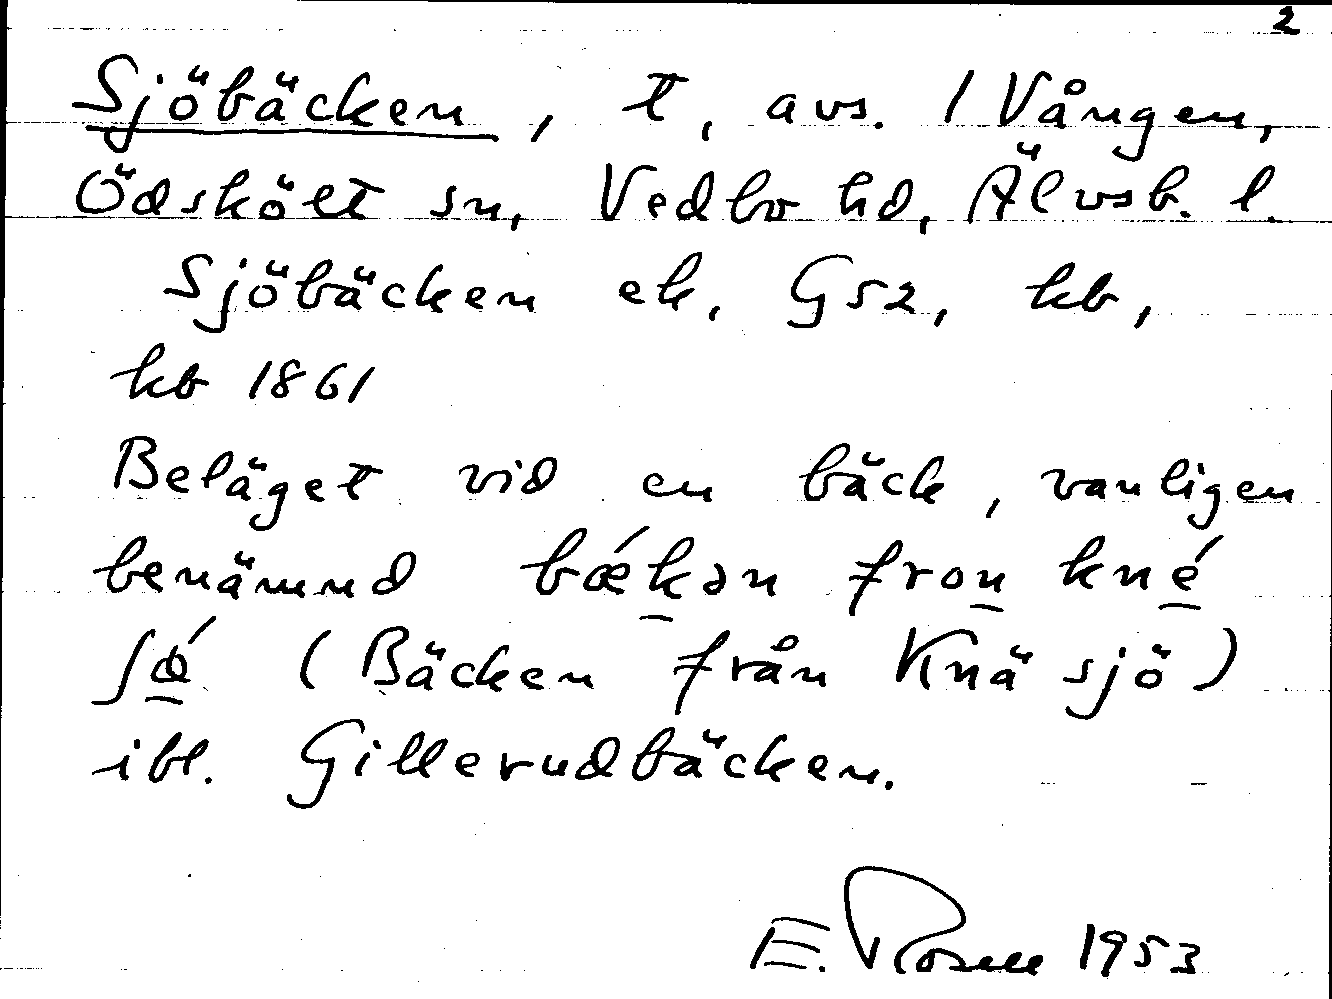 2
Sjöbäcken, t, avs. 1 Vången,
Ödskölt sn, Vedbo hd, Älvsb. l.
Sjöbäcken ek, G52, kb,
kb 1861
Beläget vid en bäck, vanligen
benämnd bǽkən fron kné
ʃǿ (Bäcken från Knä sjö)
ibl. Gillerudbäcken.
E. Rosell 1953